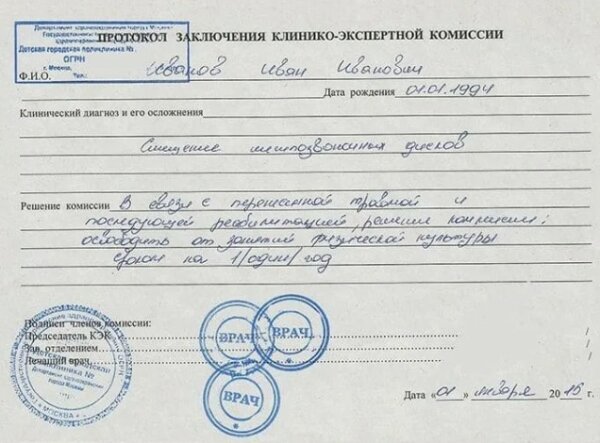 Департамент здравоохранения города Москвы
Государственное
Детская городская поликлиника №
ОГРН
г. Москва, Тел.:
ПРОТОКОЛ ЗАКЛЮЧЕНИЯ КЛИНИКО-ЭКСПЕРТНОЙ КОМИССИИ
Ф.И.О. Иванов Иван Иванович
Дата рождения 01.01.1994
Клинический диагноз и его осложнения
Смещение межпозвоночных дисков
Решение комиссии В связи с перенесенной травмой и
последующей реабилитацией, решение комиссии:
освободить от занятий физической культуры
сроком на 1/один/ год
Подписи членов комиссии:
Председатель КЭК /
Зав. отделением /
Лечащий врач /
ВРАЧ
ВРАЧ
ВРАЧ
МОСКВА
Дата «01» января 2015 г.